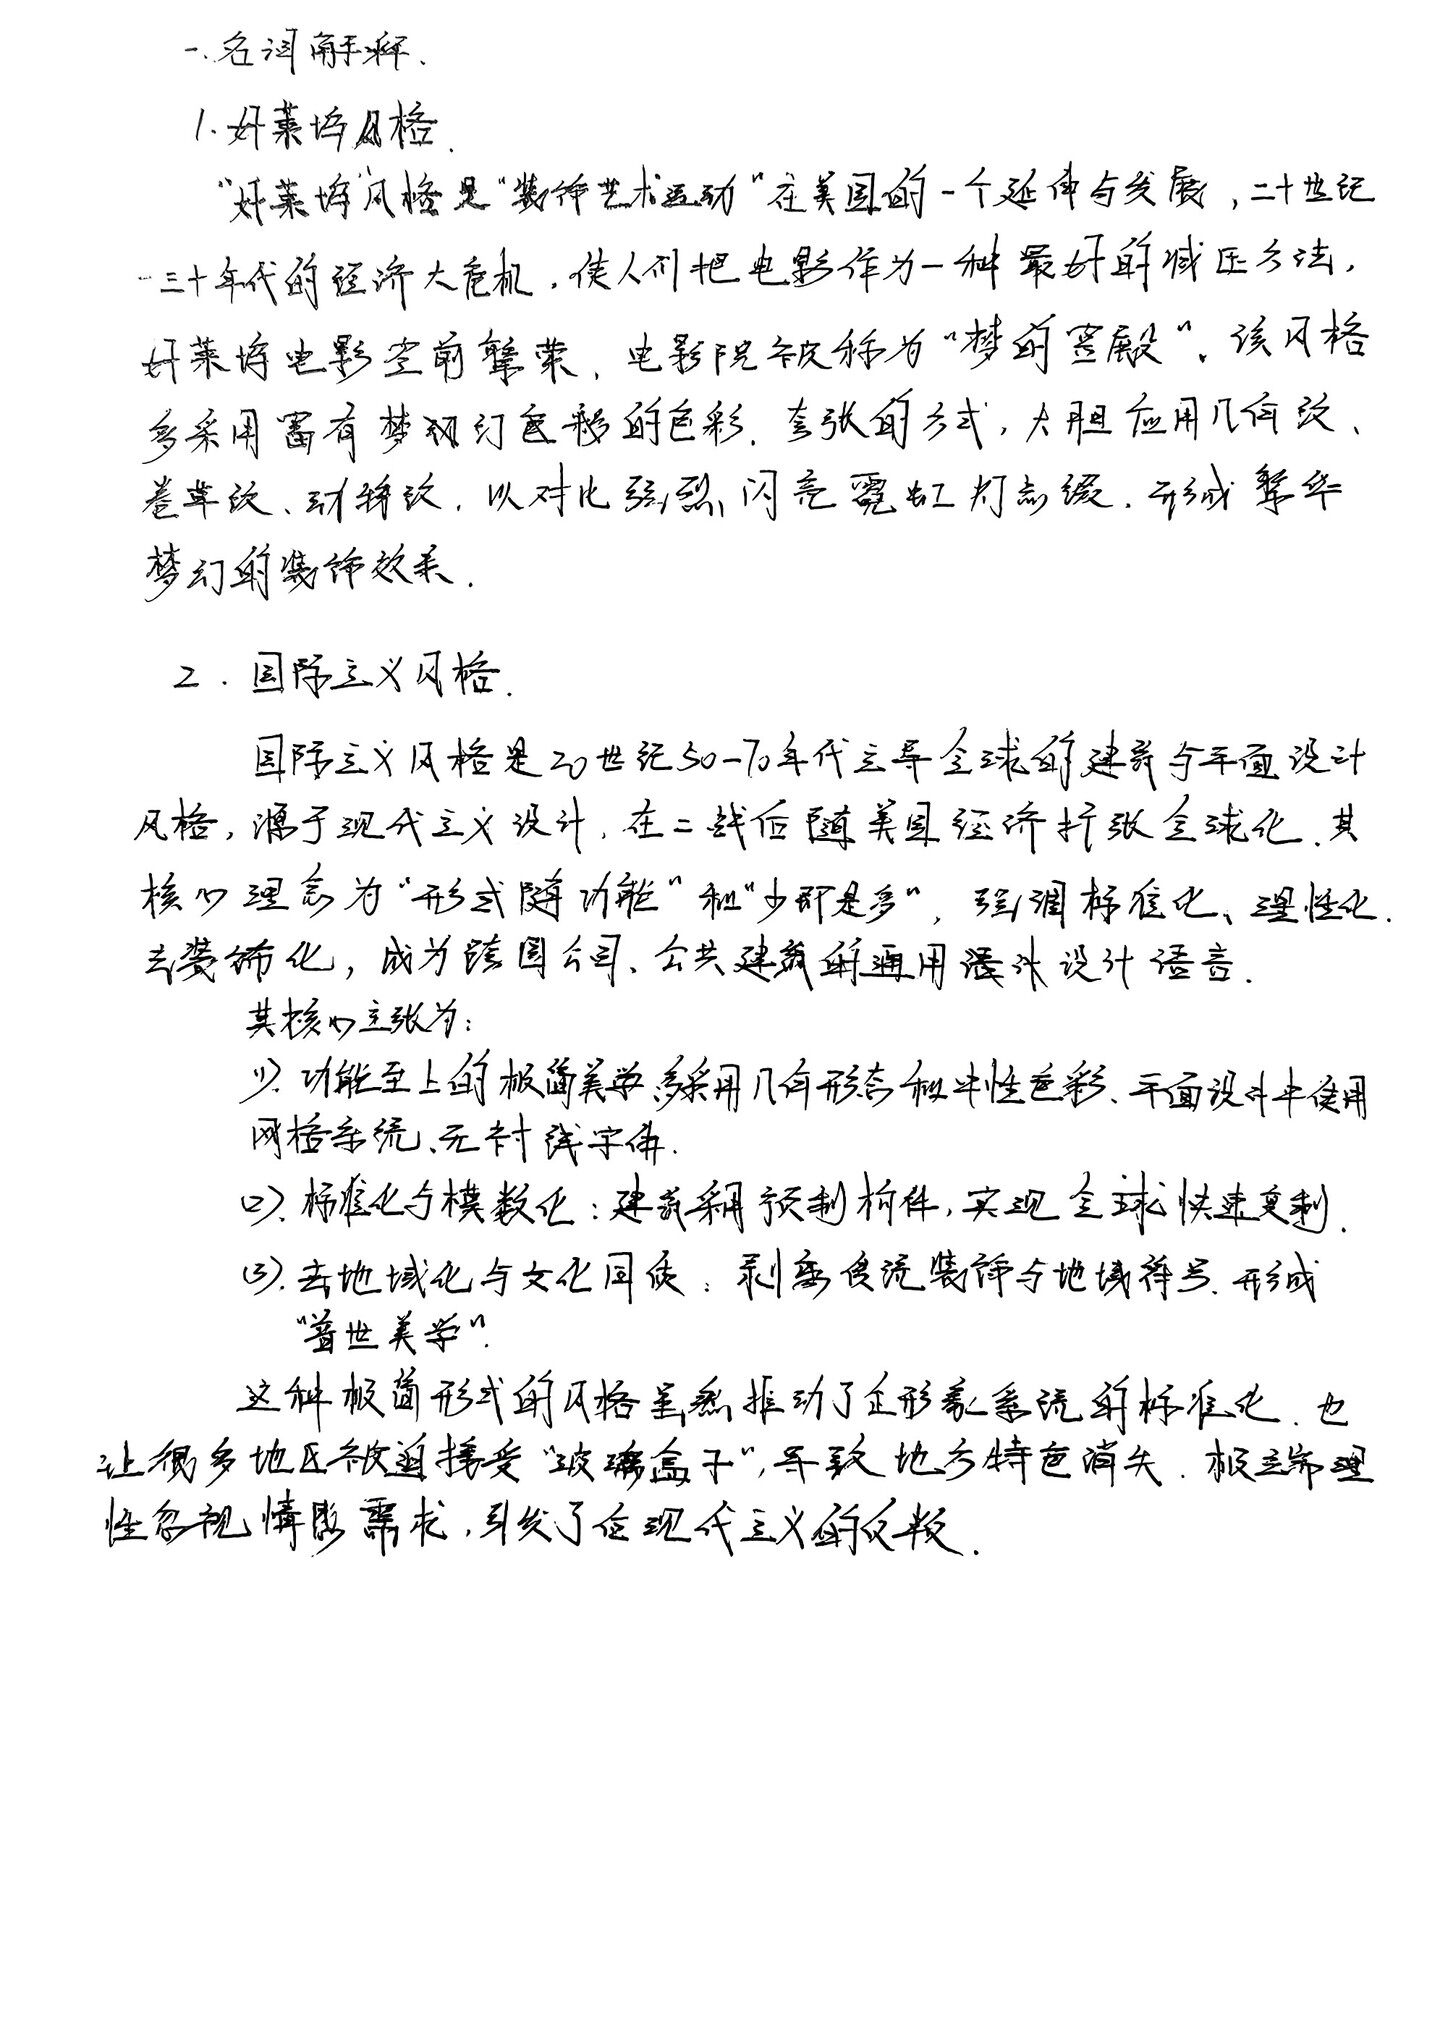 一、名词解释.
1. 好莱坞风格.
"好莱坞"风格是"装饰艺术运动"在美国的一个延伸与发展，二十世纪
三十年代的经济大危机，使人们把电影作为一种最好的减压方法，
好莱坞电影空前繁荣，电影院被称为"梦的宫殿"。该风格
多采用富有梦幻色彩的色彩、夸张的方式，大胆应用几何纹、
卷草纹、动物纹，以对比强烈、闪亮霓虹灯点缀，形成繁华
梦幻的装饰效果.
2. 国际主义风格.
国际主义风格是20世纪50-70年代主导全球的建筑与平面设计
风格，源于现代主义设计，在二战后随美国经济扩张全球化.其
核心理念为"形式随功能"和"少即是多"，强调标准化、理性化、
去装饰化，成为跨国公司、公共建筑的通用设计语言.
其核心主张为：
(1). 功能至上的极简美学,多采用几何形态和中性色彩、平面设计中使用
网格系统、无衬线字体.
(2). 标准化与模数化：建筑采用预制构件，实现全球快速复制.
(3). 去地域化与文化同质：剥离传统装饰与地域符号.形成
"普世美学".
这种极简形式的风格虽然推动了企形象系统的标准化.也
让很多地区被迫接受"玻璃盒子"，导致地方特色消失.极端理
性忽视情感需求，引发了后现代主义的反叛.